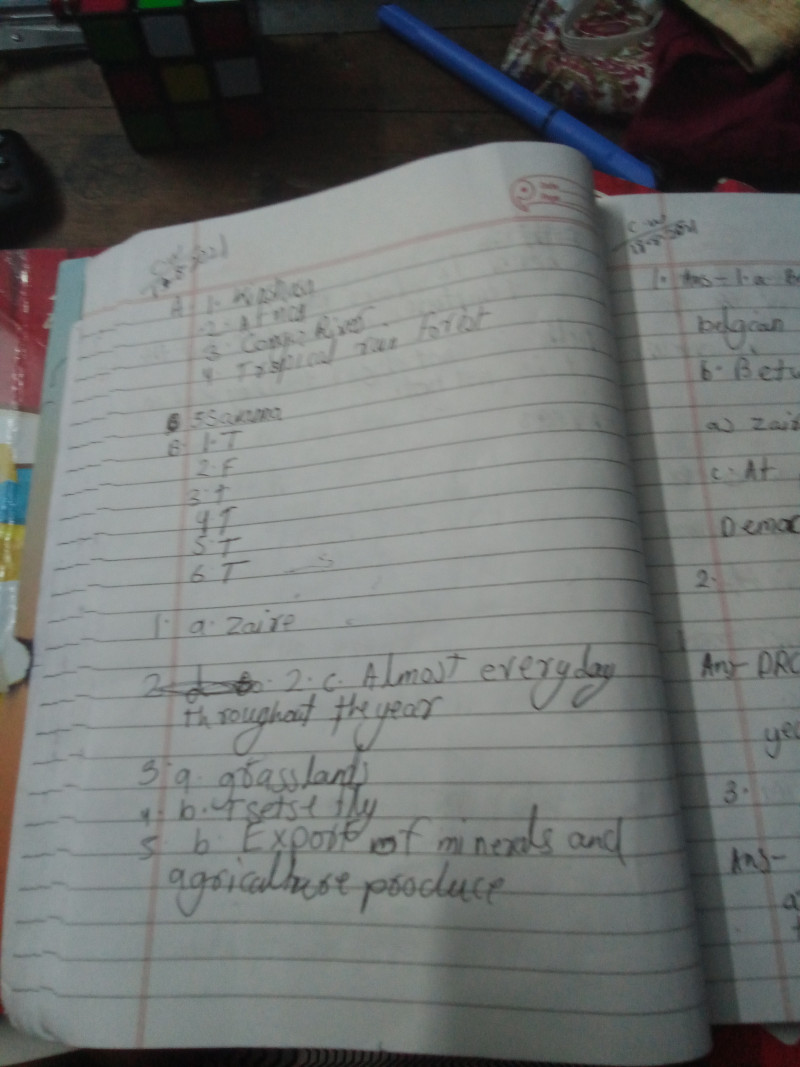 A. 1.
2.
3. Congo River
4. Tropical rain forest
5 Savanna
B. 1. T
2. F
3. T
4. T
5. T
6. T
1. a. Zaire
2. 2. c. Almost everyday
throughout the year
3. a. grasslands
4. b. Tsetse fly
5 b. Export of minerals and
agriculture produce
C.W
1. Ans - 1. a.
belgian
b. Betw
a) Zair
c. At
Democ
2.
Ans- DRC
yea
3.
Ans-
a